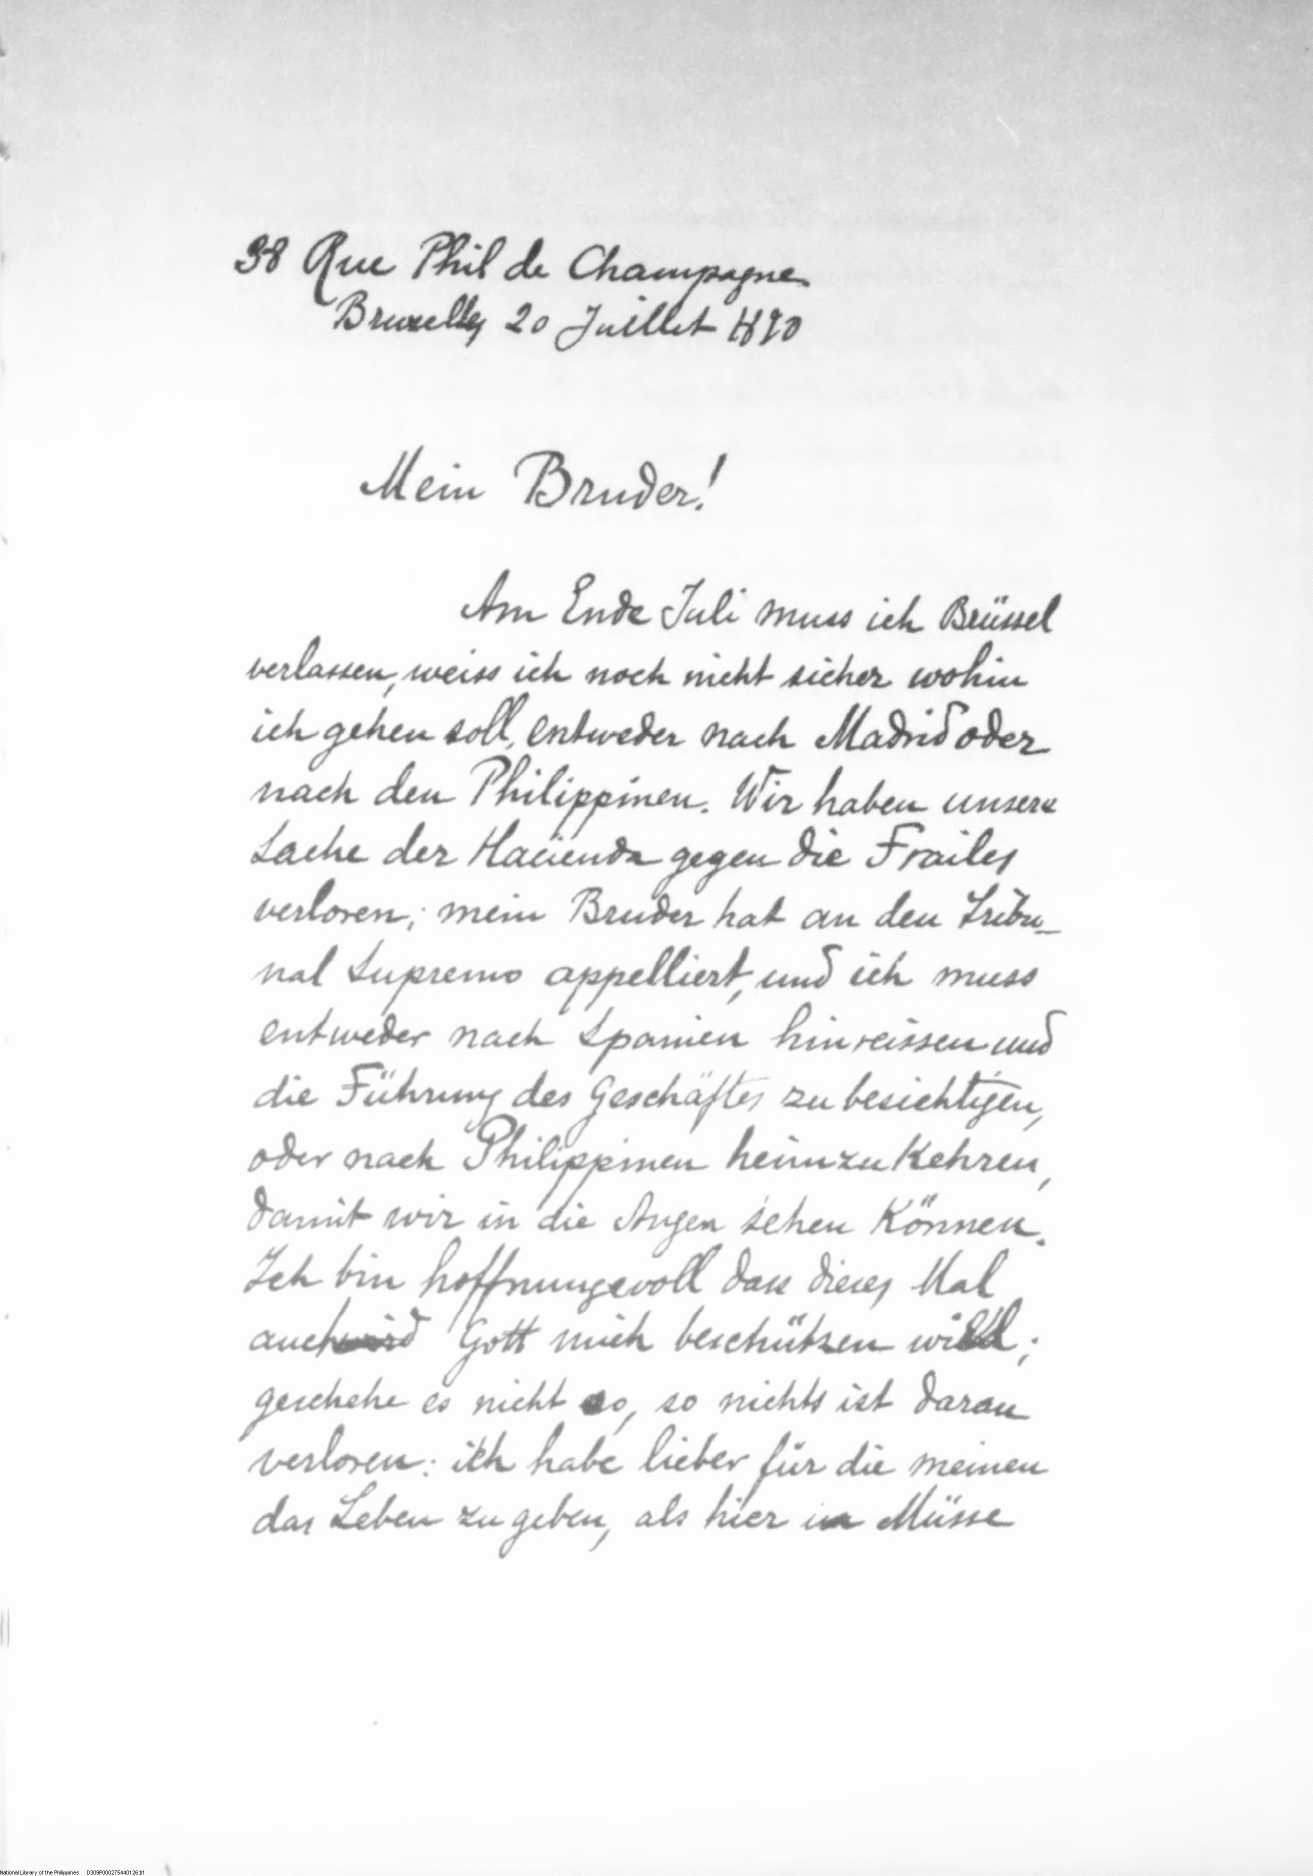 38 Rue Phil de Champagne
Bruxelles 20 Juillet 1890
Mein Bruder!
Am Ende Juli muss ich Brüssel
verlassen, weiss ich noch nicht sicher wohin
ich gehen soll, entweder nach Madrid oder
nach den Philippinen. Wir haben unsere
Sache der Hacienda gegen die Frailes
verloren; mein Bruder hat an den Tribu-
nal Supremo appelliert, und ich muss
entweder nach Spanien hinreissen und
die Führung des Geschäftes zu besichtigen,
oder nach Philippinen heimzukehren,
damit wir in die Augen sehen können.
Ich bin hoffnungsvoll dass dieses Mal
auch Gott mich beschützen will;
geschehe es nicht so, so nichts ist daran
verloren: ich habe lieber für die meinen
das Leben zu geben, als hier in Müsse
National Library of the Philippines